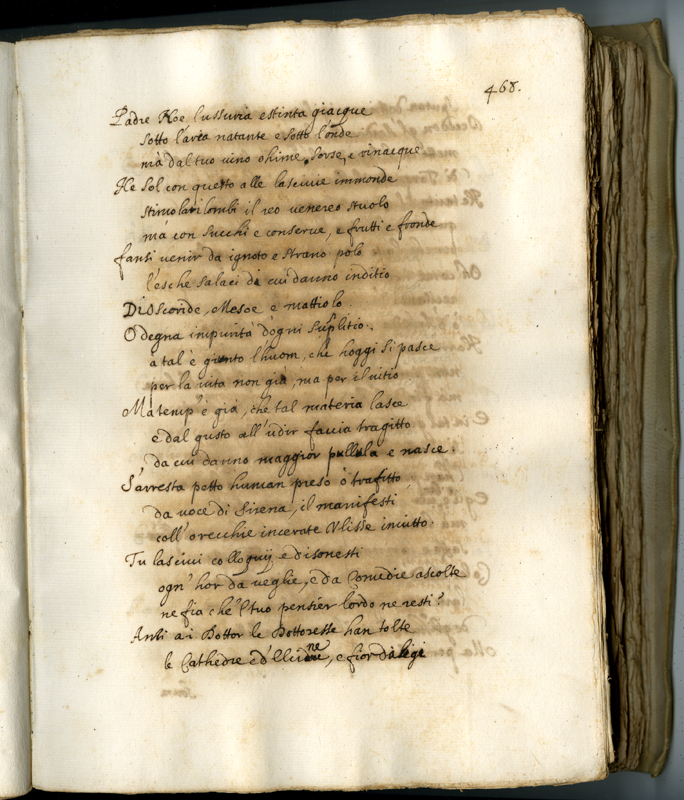 468.
Padre Noe lussuria estinta giacque
sotto l'arca natante e sotto l'onde
mà dal tuo vino ohime, sorse, e rinacque
Ne sol con questo alle lascivie immonde
stimolar i lombi il reo venereo stuolo
mà con succhi e conserve, e frutti e fronde
fansi venir da ignoto e strano polo
l'esche salaci di cui danno inditio
Dioscoride, Mesoe e mattiolo
O degna impurità d'ogni suplitio.
a tal è giunto l'huom, che hoggi si pasce
per la vita non già, ma per il vitio
Ma temp' è già, che tal materia lasce
e dal gusto all' udir faccia tragitto
da cui danno maggior pullula e nasce.
S'arresta petto human preso ò trafitto,
da voce di sirena, il manifesti
coll' orecchie incerate Ulisse invitto.
Tu lascivi colloquij e disonesti
ogn' hor da veglie, e da Comedie ascolte
ne fia che 'l tuo pensier lordo ne resti?
Anzi a i Dottor le Dottoresse han tolte
le Cathedre ed' , e fiordaligi